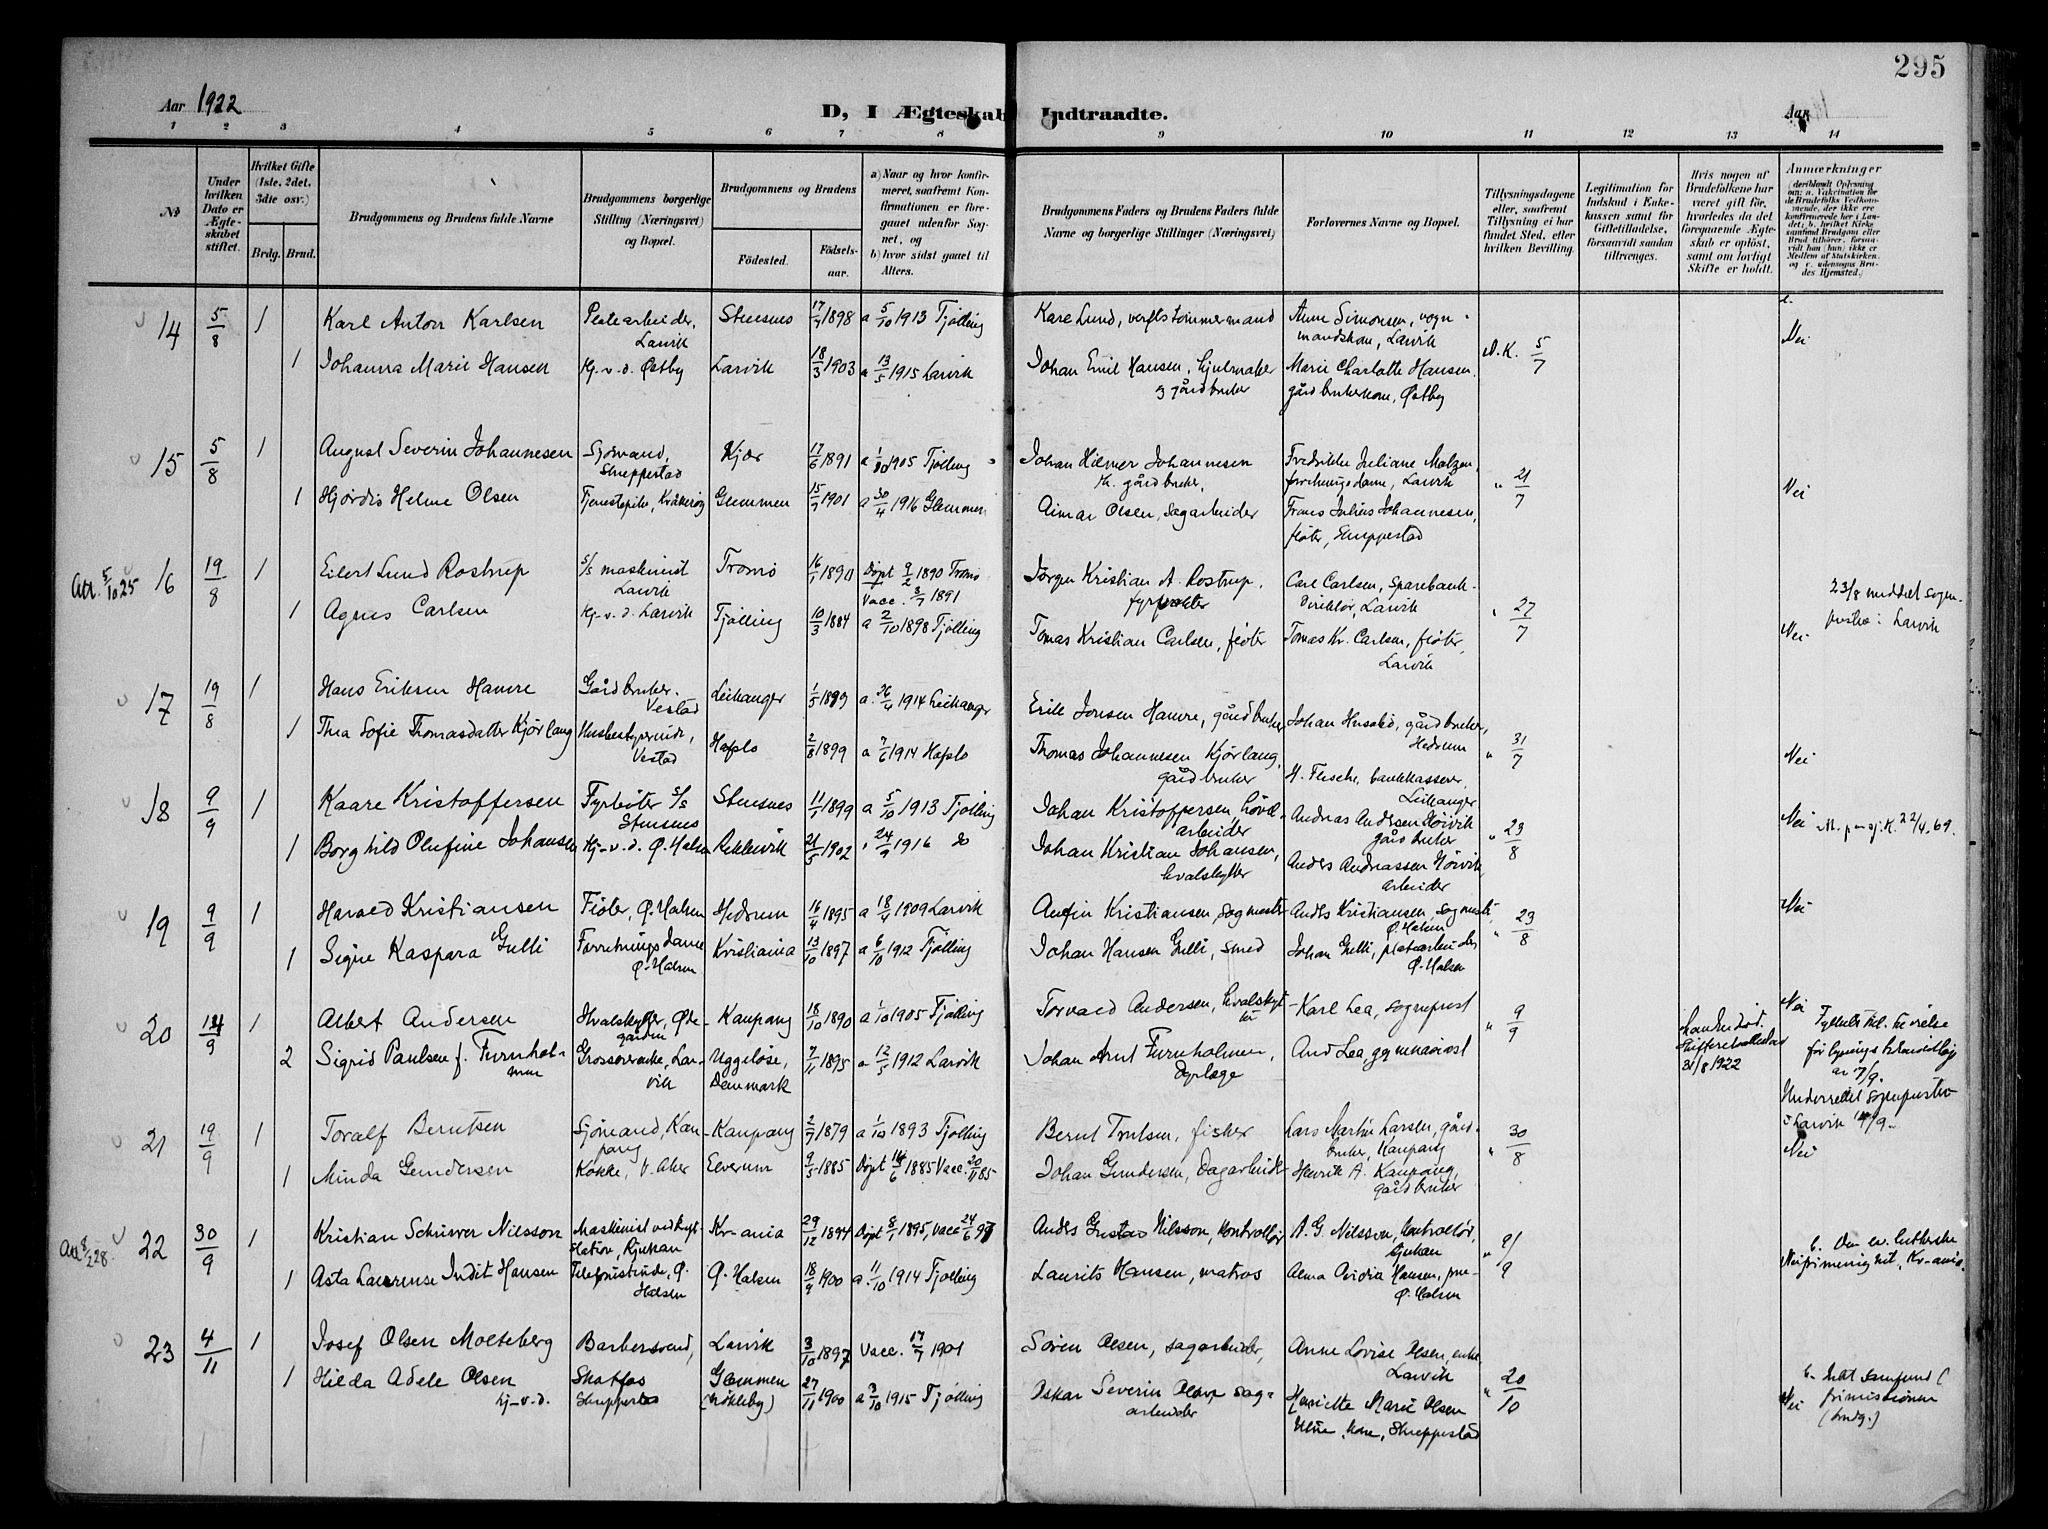 295
Aar 1922
D, I Ægteskab Indtraadte.
Aar
1 2 3 4 5 6 7 8 9 10 11 12 13 14
№
Under hvilken Dato er Ægteskabet stiftet.
Hvilket Gifte (1ste, 2det, 3die osv.)
Brdg. Brud.
Brudgommens og Brudens fulde Navne
Brudgommens borgerlige Stilling (Næringsvei) og Bopæl.
Brudgommens og Brudens
Fødested.
Fødsels-aar.
a) Naar og hvor konfirmeret, saafremt Konfirmationen er foregaaet udenfor Sognet, og
b) hvor sidst gaaet til Alters.
Brudgommens Faders og Brudens Faders fulde Navne og borgerlige Stillinger (Næringsvei)
Forlovernes Navne og Bopæl.
Tillysningsdagene eller, saafremt Tillysning ei har fundet Sted, efter hvilken Bevilling.
Legitimation for Indskud i Enkekassen samt for Giftetilladelse, forsaavidt saadan tiltrænges.
Hvis nogen af Brudefolkene har været gift før, hvorledes da det foregaaende Ægteskab er opløst, samt om lovligt Skifte er holdt.
Anmærkninger
14 5/8 1 Karl Anton Karlsen Platearbeider, Larvik Stensnes 17/7 1898 a 5/10 1913 Tjølling Kare Lund, verftstømmermand Anne Simonsen, vognmandskone, Larvik
1 Johanna Marie Hansen Hj.v.d. Østby Larvik 18/3 1903 a 13/5 1915 Larvik Johan Emil Hansen, hjulmaker & gårdbruker Marie Charlotte Hansen, gårdbrukerkone, Østby 5/7 Nei
15 5/8 1 August Severin Johannesen Sjømand, Skreppestad Kjær 17/6 1891 a 1/10 1905 Tjølling Johan Hilmer Johannesen gårdbruker, Fredrikke Juliane forretningsdame, Larvik
1 Hjørdis Helene Olsen Tjenestepike, Kråkerøy Glemmen 15/7 1901 a 30/4 1916 Glemmen Aimar Olsen, sagarbeider Frans Julius Johannesen, fløter, Skreppestad " 21/7 Nei
Att. 5/10 25 16 19/8 1 Eilert Lund Rostrup S/s maskinist Larvik Tromø 16/1 1890 Døpt 9/2 1890 Tromø Vacc. 3/7 1891 Jørgen Kristian A. Rostrup, fyrvokter Carl Carlsen, Sparebankdirektør, Larvik
1 Agnes Carlsen Hj-v.d. Larvik Tjølling 10/3 1884 a 2/10 1898 Tjølling Tomas Kristian Carlsen, fløter Tomas Kr. Carlsen, fløter, Larvik " 27/7 Nei 23/8 meddelt sogneprestene i Larvik
17 19/8 1 Hans Eriksen Hamre Gårdbruker. Vestad Leikanger 1/5 1899 a. 26/4 1914 Leikanger Erik Jonsen Hamre, gårdbruker Johan Husabø, gårdbruker, Hedrum
1 Thea Sofie Thomasdatter Kjørlaug Vestad Hafslo 2/8 1899 a 7/6 1914 Hafslo Thomas Johannesen Kjørlaug, gårdbruker bankkasserer, Leikanger " 31/7 Nei
18 9/9 1 Kaare Kristoffersen Fyrbøter S/s Stensnes Stensnes 11/1 1899 a 5/10 1913 Tjølling Johan Kristoffersen, arbeider Andreas Andersen Høivik gårdbruker
1 Borghild Olufine Johansen Hj-v.d. Ø. Halsen Rekkevik 21/5 1902 " 24/9 1916 do Johan Kristian Johansen, hvalskytter Anders Andreassen Høivik, arbeider " 23/8 Nei 22/4.69.
19 9/9 1 Harald Kristiansen Fløter, Ø. Halsen Hedrum 16/4 1895 a 18/4 1909 Larvik Antin Kristiansen, sagmester Anders Kristiansen, sagmester, Ø. Halsen
1 Signe Kaspara Gulli Forretningsdame Ø. Halsen Kristiania 13/10 1897 a 6/10 1912 Tjølling Johan Hansen Gulli, smed Johan Gulli, platearbeider Ø. Halsen " 23/8 Nei
20 14/9 1 Albert Andersen Hvalskytter, Ødegården Kaupang 18/10 1890 a 1/10 1905 Tjølling Torvald Andersen, hvalskytter Karl Lea, sogneprest
2 Sigrid Paulsen f. Furnholmen Grossererenke, Larvik Uggeløse, Danmark 7/11 1895 a 12/5 1912 Larvik Johan Arnt Furnholmen, Dyrlæge And Lea, gymnasiast " 9/9 31/8 1922 Nei av 7/9. Underrettet sognepresten i Larvik 14/9.
21 19/9 1 Toralf Berntsen Sjømand, Kaupang Kaupang 2/7 1879 a 1/10 1893 Tjølling Bernt Trulsen, fisker Lars Martin Larsen, gårdbruker, Kaupang
1 Minda Gundersen Kokke, V. Aker Elverum 9/5 1885 Døpt 14/6 1885 Vacc. 20/11 85 Johan Gundersen, Dagarbeider Henrik A. Kaupang, gårdbruker " 30/8 Nei
Att 8/2 28. 22 30/9 1 Kristian Schriwer Nilsson Maskinist ved kraftstation, Rjukan Kr-ania 29/12 1894 Døpt 8/1 1895, Vacc 24/6 97 Anders Gustav Nilsson, kontrollør A. G. Nilsson, kontrollør, Rjukan
1 Asta Laurense Indit Hansen Telefonistinde, Ø. Halsen Ø. Halsen 18/9 1900 a. 11/10 1914 Tjølling Laurits Hansen, matros Alma Ovidia Hansen, frue Ø. Halsen " 9/9 Nei b. Den ev. lutherske frimenighet, Kr-ania.
23 4/11 1 Josef Olsen Molteberg Barbersvend, Larvik 3/10 1897 Vacc. 17/7 1901 Søren Olsen, sagarbeider, Anne Lovise Olsen, enke, Larvik
1 Hilda Adele Olsen hj-v.d. Skotfos Skreppestad Glemmen 27/11 1900 a 3/10 1915 Tjølling Oskar Severin Olsen sagarbeider Henriette Marie Olsen kone, Skreppestad " 20/10 Nei